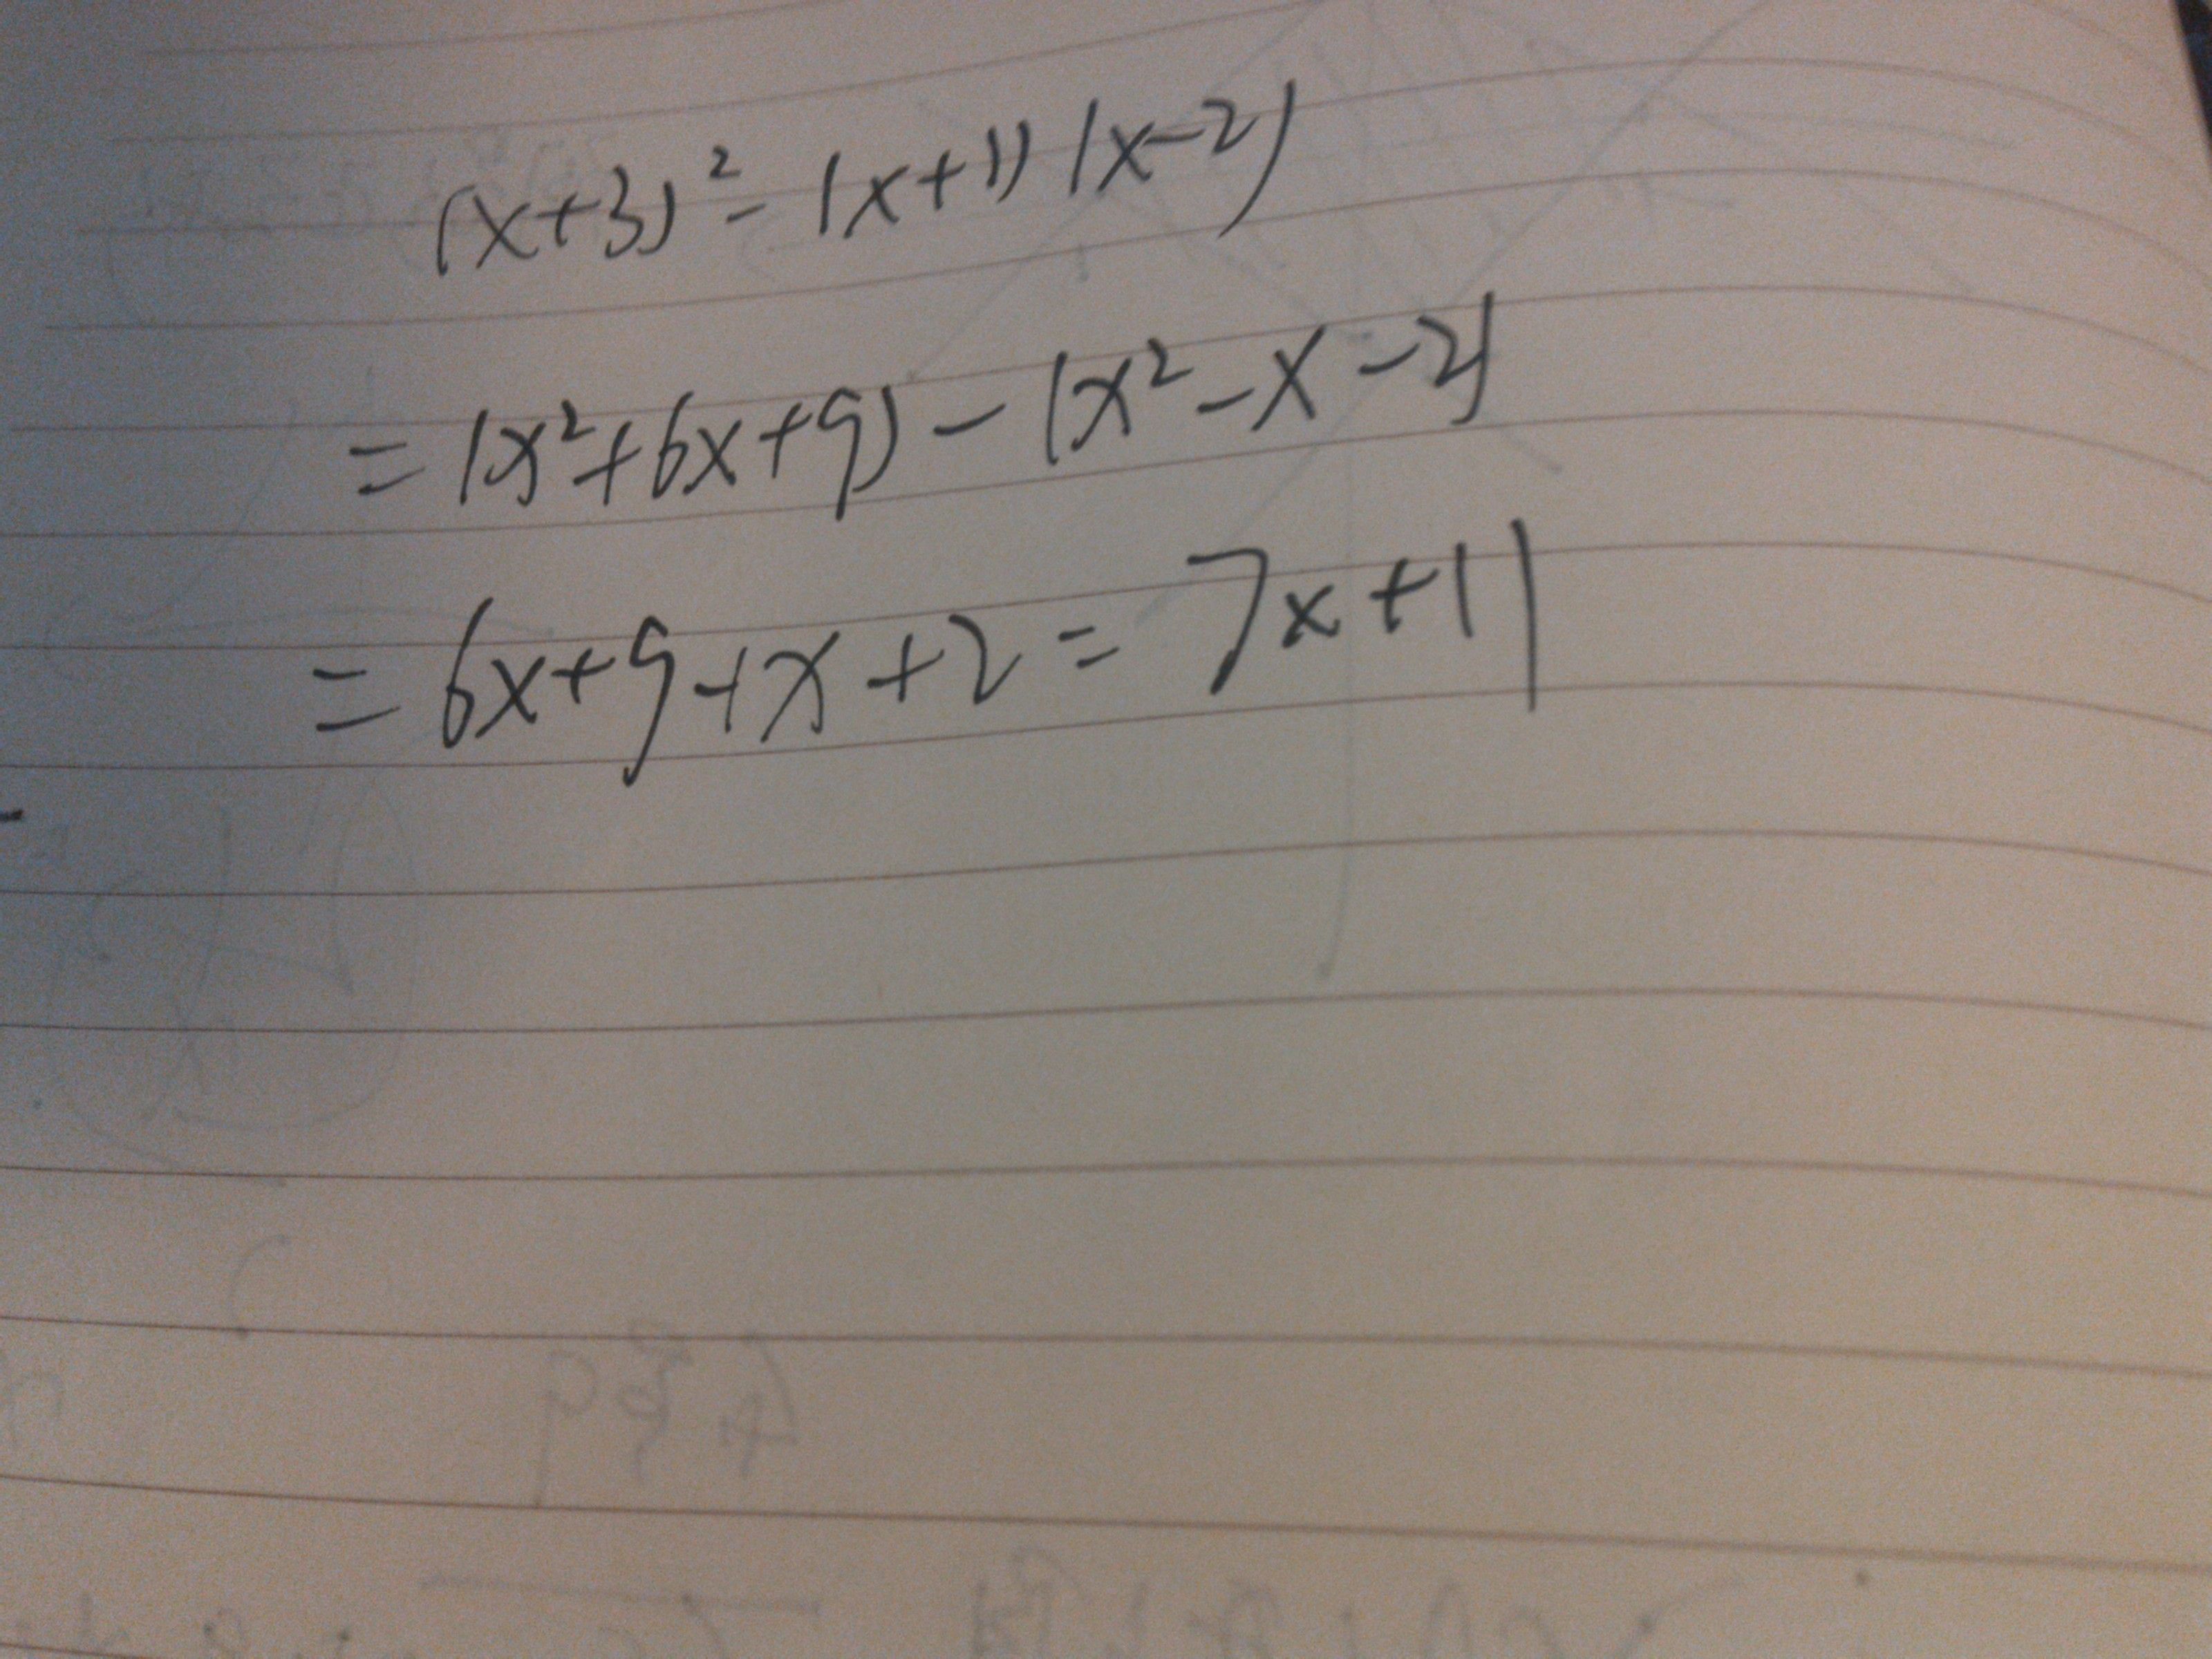 (x+3)² - (x+1)(x-2)
= (x²+6x+9) - (x²-x-2)
= 6x+9+x+2 = 7x+11